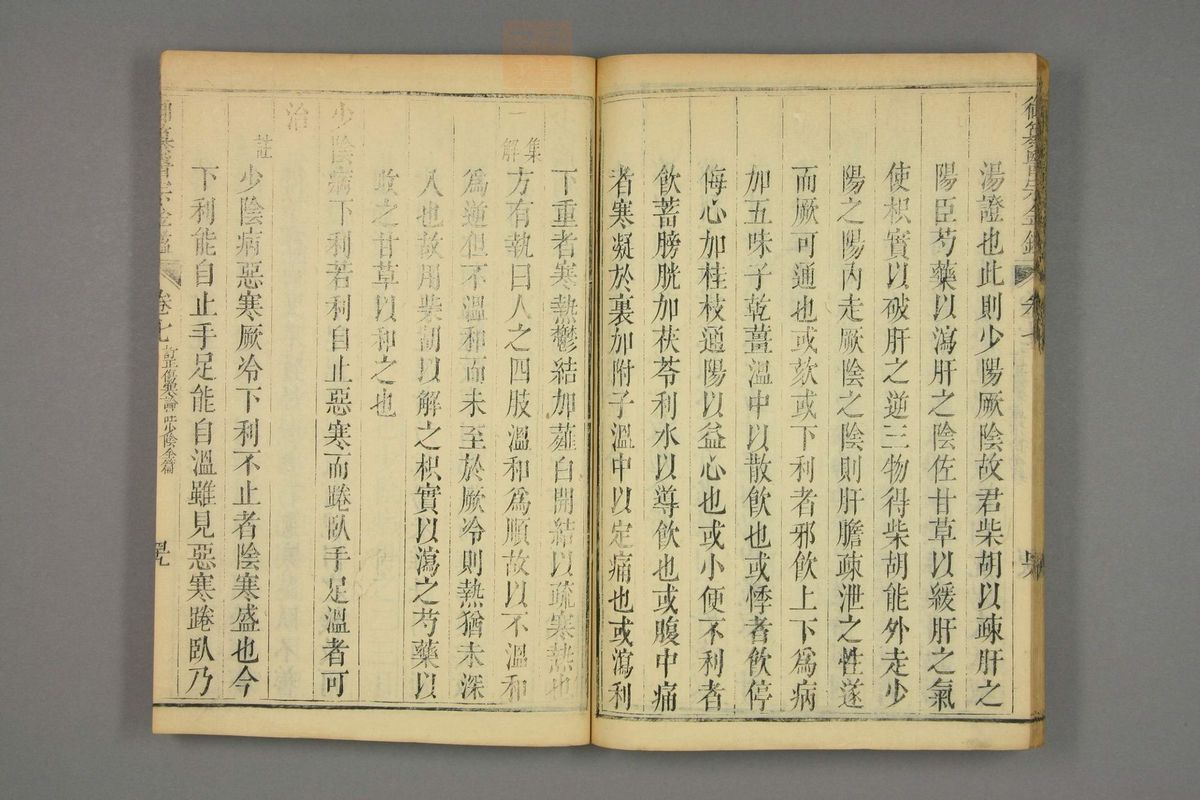 御纂醫宗金鑑 卷七
湯證也此則少陽厥陰故君柴胡以疎肝之
陽臣芍藥以瀉肝之陰佐甘草以緩肝之氣
使枳實以破肝之逆三物得柴胡能外走少
陽之陽內走厥陰之陰則肝膽疎泄之性遂
而厥可通也或欬或下利者邪飲上下爲病
加五味子乾薑溫中以散飲也或悸者飲停
侮心加桂枝通陽以益心也或小便不利者
飲蓄膀胱加茯苓利水以導飲也或腹中痛
者寒凝於裏加附子溫中以定痛也或瀉利
下重者寒熱鬱結加薤白開結以疏寒熱也
集解
方有執曰人之四肢溫和爲順故以不溫和
爲逆但不溫和而未至於厥冷則熱猶未深
入也故用柴胡以解之枳實以瀉之芍藥以
收之甘草以和之也
少陰病下利若利自止惡寒而踡臥手足溫者可
治
註
少陰病惡寒厥冷下利不止者陰寒盛也今
下利能自止手足能自溫雖見惡寒踡臥乃
御纂醫宗金鑑 卷七 訂正傷寒論註少陰全篇